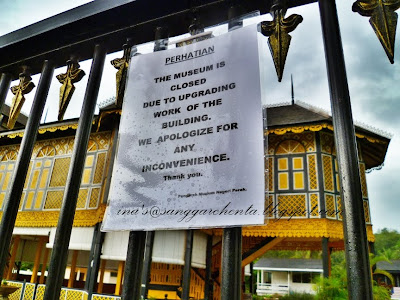 PERHATIAN
THE MUSEUM IS
CLOSED
DUE TO UPGRADING
WORK OF THE
BUILDING.
WE APOLOGIZE FOR
ANY
INCONVENIENCE.
Thank you.
Pengarah Muzium Negeri Perak.
ina's@sanggarchenta.blogspot.com